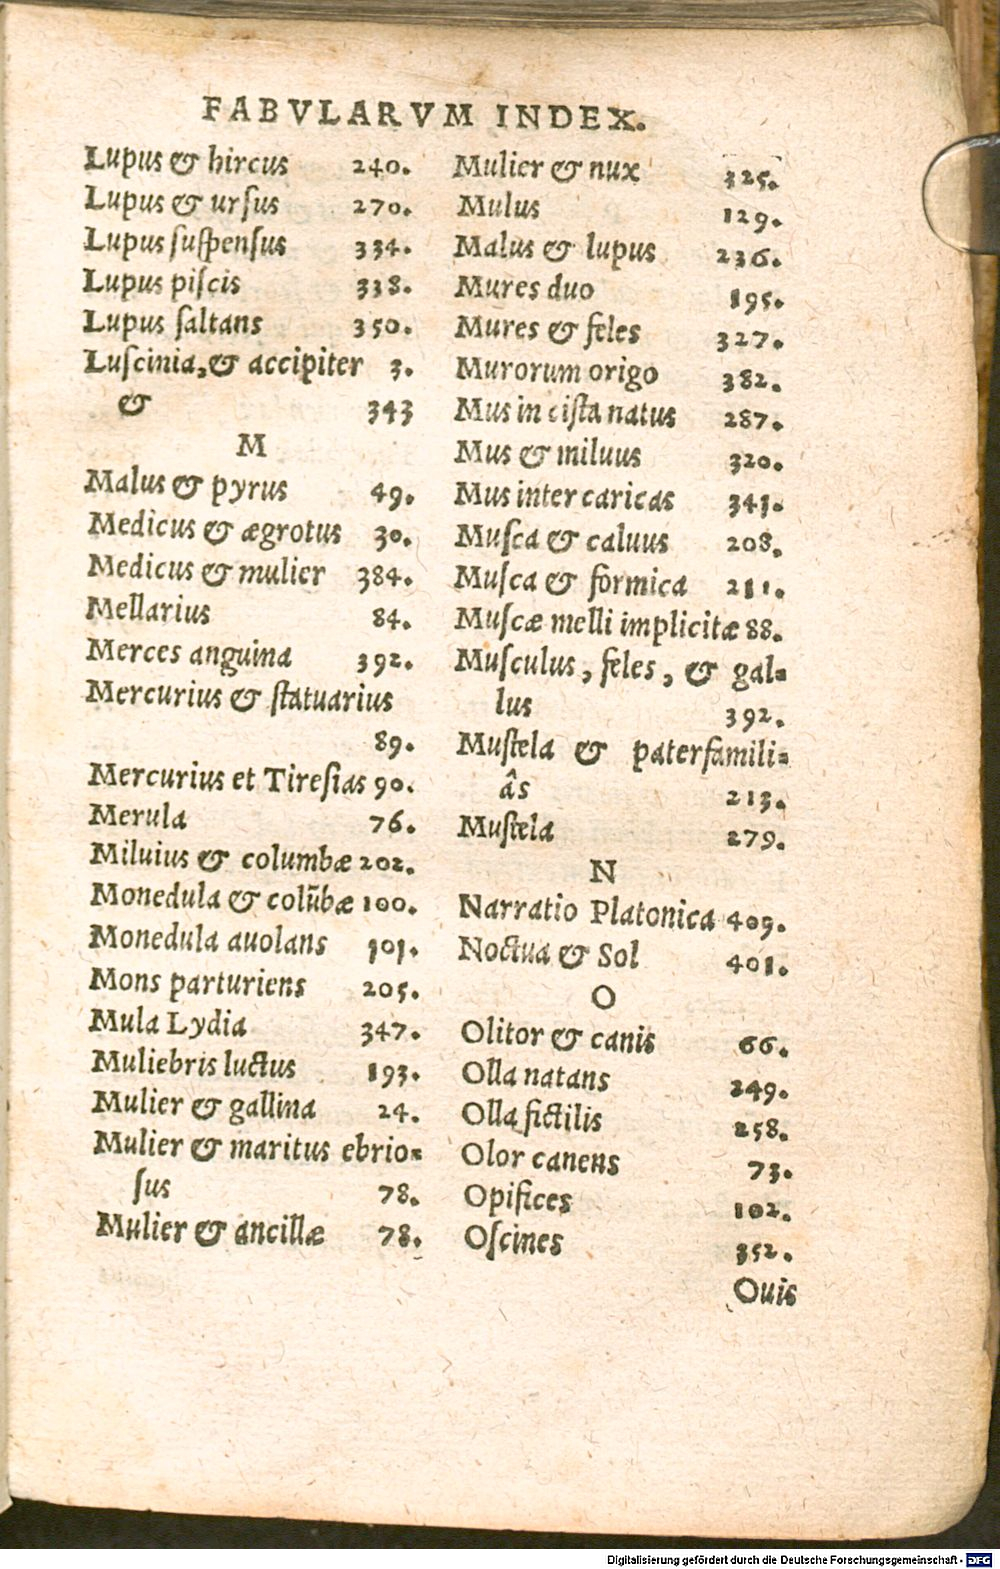 FABVLARVM INDEX.
Lupus & hircus 240.
Lupus & ursus 270.
Lupus suſpensus 334.
Lupus piſcis 338.
Lupus ſaltans 350.
Luſcinia, & accipiter 3.
& 343
M
Malus & pyrus 49.
Medicus & ægrotus 30.
Medicus & mulier 384.
Mellarius 84.
Merces anguina 392.
Mercurius & ſtatuarius
89.
Mercurius et Tireſias 90.
Merula 76.
Miluius & columbæ 202.
Monedula & colūbæ 100.
Monedula auolans 101.
Mons parturiens 205.
Mula Lydia 347.
Muliebris luctus 193.
Mulier & gallina 24.
Mulier & maritus ebrio=
ſus 78.
Mulier & ancillæ 78.
Mulier & nux 325.
Mulus 129.
Malus & lupus 236.
Mures duo 195.
Mures & feles 327.
Murorum origo 382.
Mus in ciſta natus 287.
Mus & miluus 320.
Mus inter caricas 341.
Muſca & caluus 208.
Muſca & formica 211.
Muſcæ melli implicitæ 88.
Muſculus, feles, & gal=
lus 392.
Muſtela & paterfamili=
âs 213.
Muſtela 279.
N
Narratio Platonica 409.
Noctua & Sol 401.
O
Olitor & canis 66.
Olla natans 249.
Olla fictilis 258.
Olor canens 73.
Opifices 102.
Oſcines 352.
Ouis
Digitalisierung gefördert durch die Deutsche Forschungsgemeinschaft - DFG